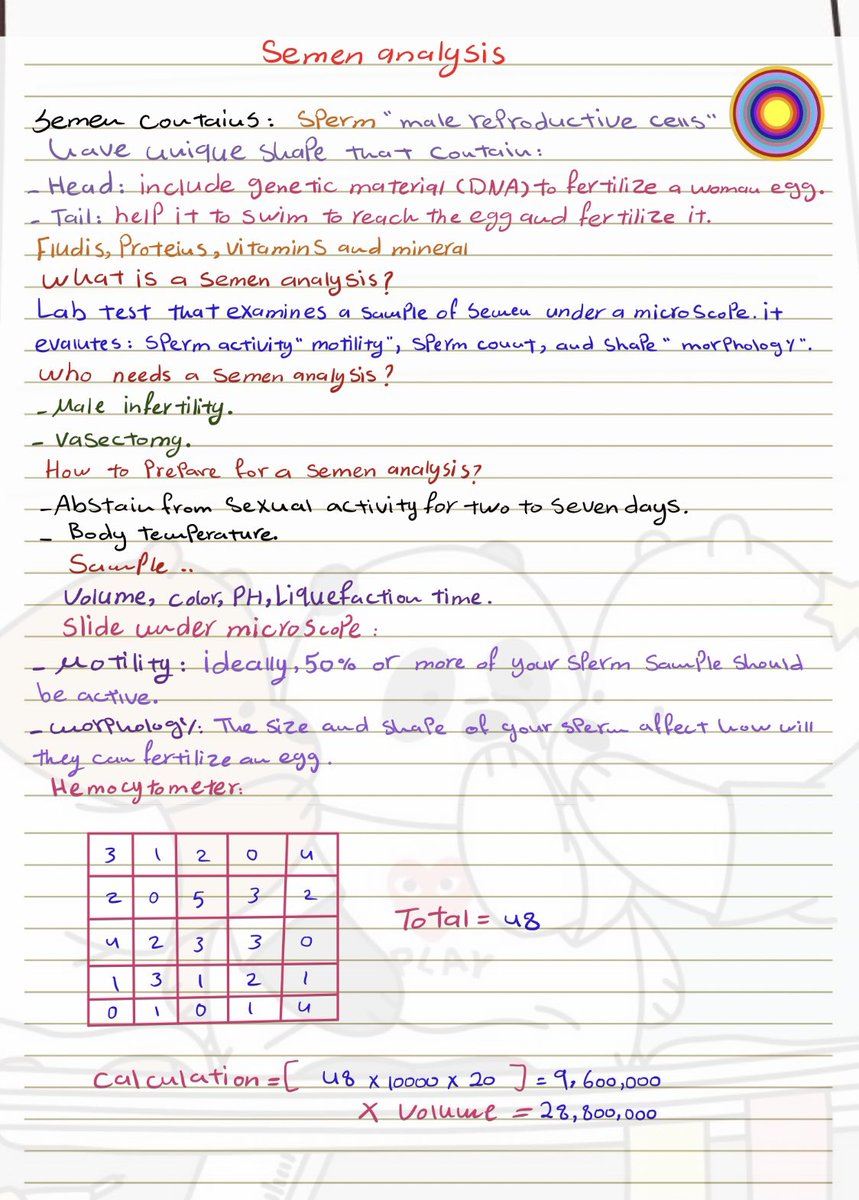 Semen analysis
Semen contains: Sperm "male reproductive cells"
have unique shape that contain:
- Head: include genetic material (DNA) to fertilize a woman egg.
- Tail: help it to swim to reach the egg and fertilize it.
Fludis, Proteins, vitamins and mineral
What is a semen analysis?
Lab test that examines a sample of semen under a microscope. it
evalutes: sperm activity "motility", sperm count, and shape "morphology".
Who needs a semen analysis?
- Male infertility.
- Vasectomy.
How to Prepare for a semen analysis?
- Abstain from sexual activity for two to seven days.
- Body temperature.
Sample ..
Volume, color, PH, Liquefaction time.
Slide under microscope:
- Motility: ideally, 50% or more of your sperm sample should
be active.
- morphology: The size and shape of your sperm affect how will
they can fertilize an egg.
Hemocytometer:
3 1 2 0 4
2 0 5 3 2
4 2 3 3 0
1 3 1 2 1
0 1 0 1 4
Total = 48
PLAY
Calculation = [ 48 x 10000 x 20 ] = 9,600,000
X Volume = 28,800,000